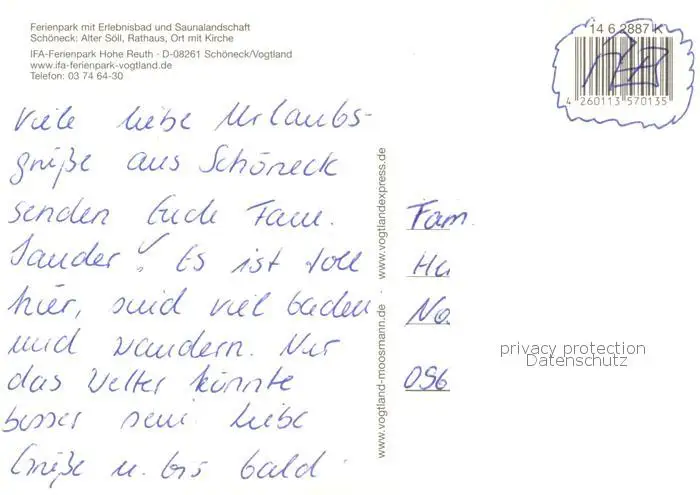 Ferienpark mit Erlebnisbad und Saunalandschaft
Schöneck: Alter Söll, Rathaus, Ort mit Kirche
IFA-Ferienpark Hohe Reuth · D-08261 Schöneck/Vogtland
www.ifa-ferienpark-vogtland.de
Telefon: 03 74 64-30
14 6 2887 K
4 260113 570135
Viele liebe Urlaubs-
grüße aus Schöneck
senden Euch Fam.
Sander! Es ist toll
hier, sind viel baden
und wandern. Nur
das Wetter könnte
besser sein. Liebe
Grüße u. bis bald.
www.vogtland-moosmann.de
www.vogtlandexpress.de
Fam.
Ha
No
096
privacy protection
Datenschutz